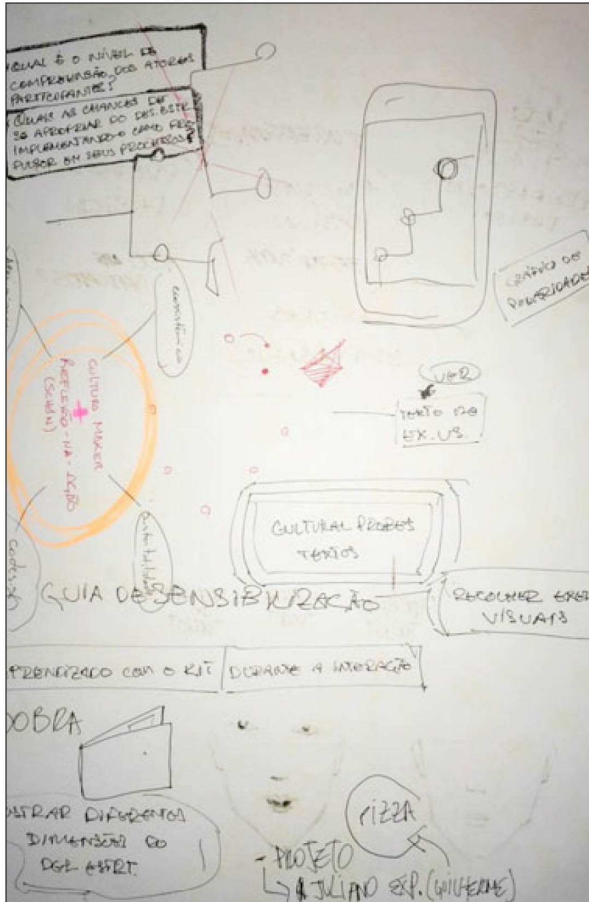 QUAL É O NÍVEL DE
COMPREENSÃO DOS ATORES
PARTICIPANTES?
QUAIS AS CHANCES DE
SE APROPRIAR DO DES. ESTR.
IMPLEMENTANDO-O COMO PRO
PULSOR EM SEUS PROCESSOS?
GRÁFICO DE
POLARIDADES
ecossistêmico
CULTURA MAKER
+
REFLEXÃO-NA-AÇÃO
(SCHÖN)
sustentabilidade
codesign
VER
TEXTO DE
EX. US.
CULTURAL PROBES
TEXTOS
GUIA DE SENSIBILIZAÇÃO
RECOLHER EXEM
VISUAIS
PRENDIZADO COM O KIT
DURANTE A INTERAÇÃO
DOBRA
STRAR DIFERENTES
DIMENSÕES DO
PIZZA
PROJETO
JULIANO EXP. (GUILHERME)